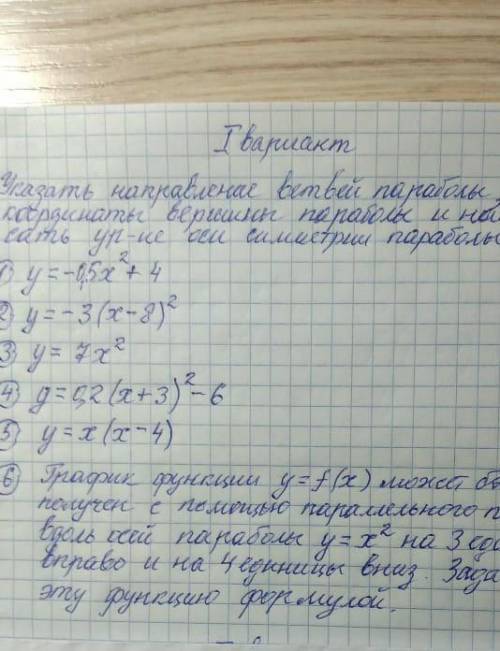 I вариант
Указать направление ветвей параболы,
координаты вершины параболы и
сать ур-ие оси симметрии параболы
1) y = -0,5x² + 4
2) y = -3(x-8)²
3) y = 7x²
4) y = 0,2(x+3)² - 6
5) y = x(x-4)
6) График функции y = f(x) может
получен с помощью паралельного
вдоль осей параболы y = x² на 3
вправо и на 4 единицы вниз.
эту функцию формулой.